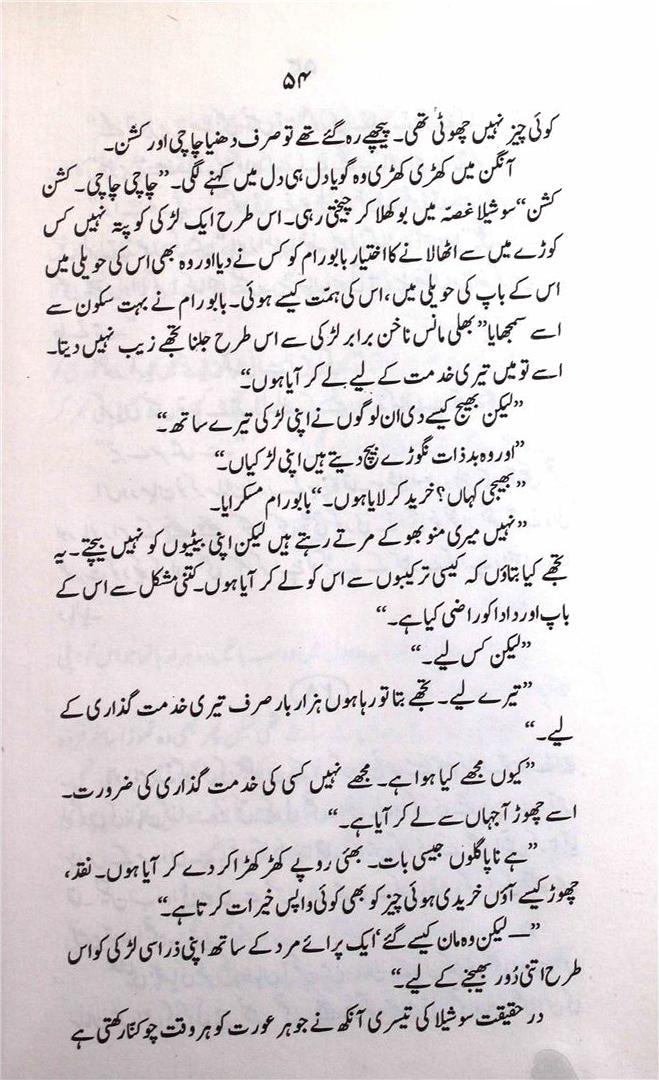 ۵۴
کوئی چیز نہیں چھوٹی تھی۔ پیچھے رہ گئے تھے تو صرف دھنیا چاچی اور کشن۔
آنگن میں کھڑی کھڑی وہ گویا دل ہی دل میں کہنے لگی۔ ”چاچی چاچی۔ کشن
کشن“ سوشیلا غصّہ میں بوکھلا کر چیختی رہی۔ اس طرح ایک لڑکی کو پتہ نہیں کس
کوڑے میں سے اٹھا لانے کا اختیار بابو رام کو کس نے دیا اور وہ بھی اس کی حویلی میں
اس کے باپ کی حویلی میں، اس کی ہمت کیسے ہوئی۔ بابو رام نے بہت سکون سے
اسے سمجھایا ”بھلی مانس ناخن برابر لڑکی سے اس طرح جلنا تجھے زیب نہیں دیتا۔
اسے تو میں تیری خدمت کے لیے لے کر آیا ہوں“
”لیکن بھیج کیسے دی ان لوگوں نے اپنی لڑکی تیرے ساتھ۔“
”اور وہ بدذات نگوڑے بیچ دیتے ہیں اپنی لڑکیاں۔“
”بھیجی کہاں؟ خرید کر لایا ہوں۔“ بابو رام مسکرایا۔
”نہیں میری منو بھوکے مرتے رہتے ہیں لیکن اپنی بیٹیوں کو نہیں بیچتے۔ یہ
تجھے کیا بتاؤں کہ کیسی ترکیبوں سے اس کو لے کر آیا ہوں۔ کتنی مشکل سے اس کے
باپ اور دادا کو راضی کیا ہے۔“
”لیکن کس لیے۔“
”تیرے لیے۔ تجھے بتا تو رہا ہوں ہزار بار صرف تیری خدمت گذاری کے
لیے۔“
”کیوں مجھے کیا ہوا ہے۔ مجھے نہیں کسی کی خدمت گذاری کی ضرورت۔
اسے چھوڑ آ جہاں سے لے کر آیا ہے۔“
”ہے نا پاگلوں جیسی بات۔ بھئی روپے کھڑکھڑا کر دے کر آیا ہوں۔ نقد،
چھوڑ کیسے آؤں خریدی ہوئی چیز کو بھی کوئی واپس خیرات کرتا ہے۔“
”— لیکن وہ مان کیسے گئے، ایک پرائے مرد کے ساتھ اپنی ذرا سی لڑکی کو اس
طرح اتنی دُور بھیجنے کے لیے۔“
در حقیقت سوشیلا کی تیسری آنکھ نے جو ہر عورت کو ہر وقت چوکنّا رکھتی ہے